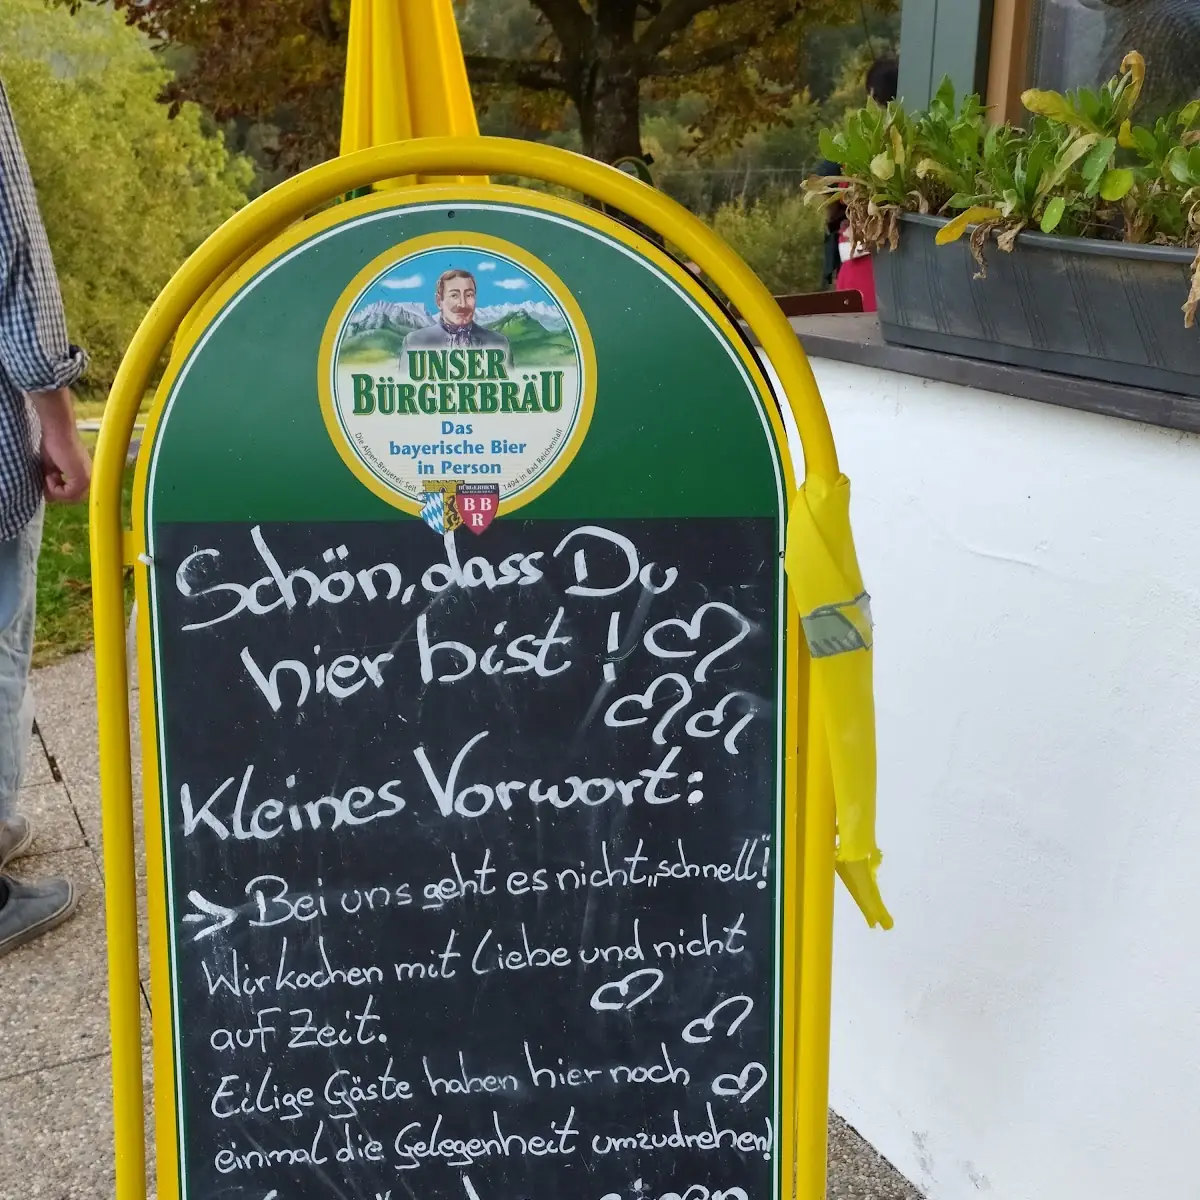 UNSER
BÜRGERBRÄU
Das
bayerische Bier
in Person
Die Alpen-Brauerei: Seit 1494 in Bad Reichenhall
BÜRGERBRÄU
B B
R
Schön, dass Du
hier bist!
Kleines Vorwort:
> Bei uns geht es nicht „schnell!"
Wir kochen mit Liebe und nicht
auf Zeit.
Eilige Gäste haben hier noch
einmal die Gelegenheit umzudrehen!